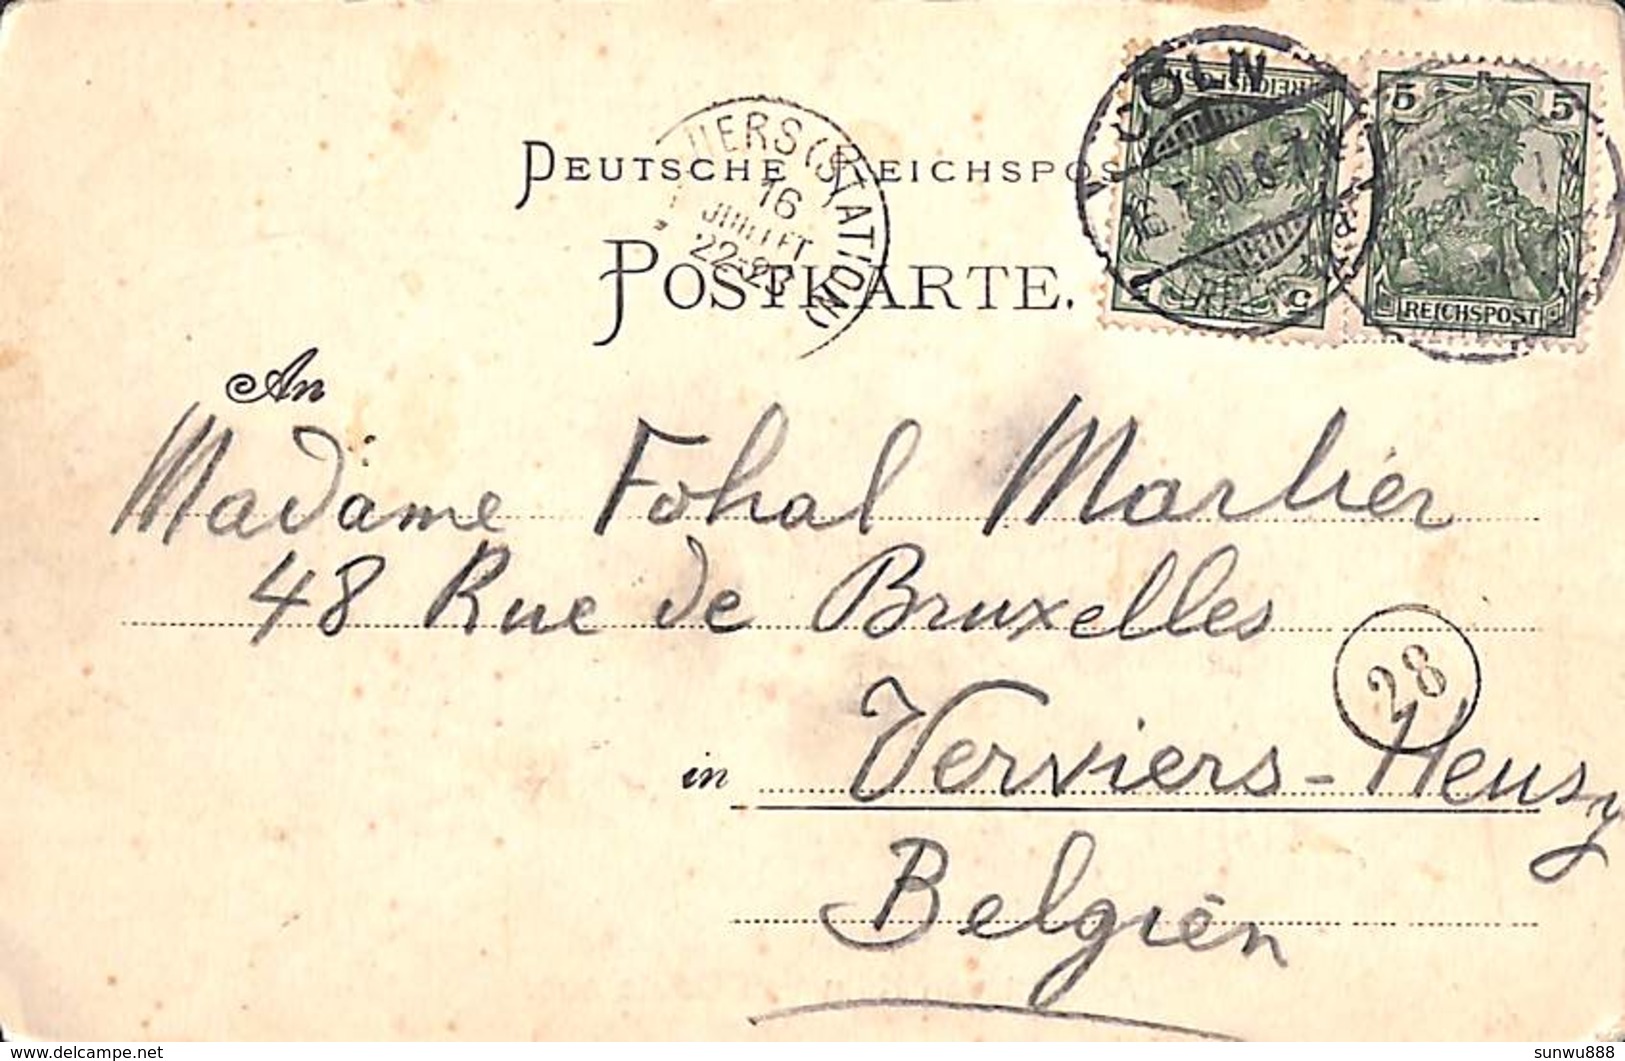 DEUTSCHE REICHSPOS
POSTKARTE.
CÖLN
16. 7. 00. 6-7
REICHSPOST
5
5 5
REICHSPOST
VIERS (STATION)
16
JUILLET
22-23
An
Madame Fohal Marlier
48 Rue de Bruxelles
28
in Verviers - Heusy
Belgien
delcampe.net
sunwu888